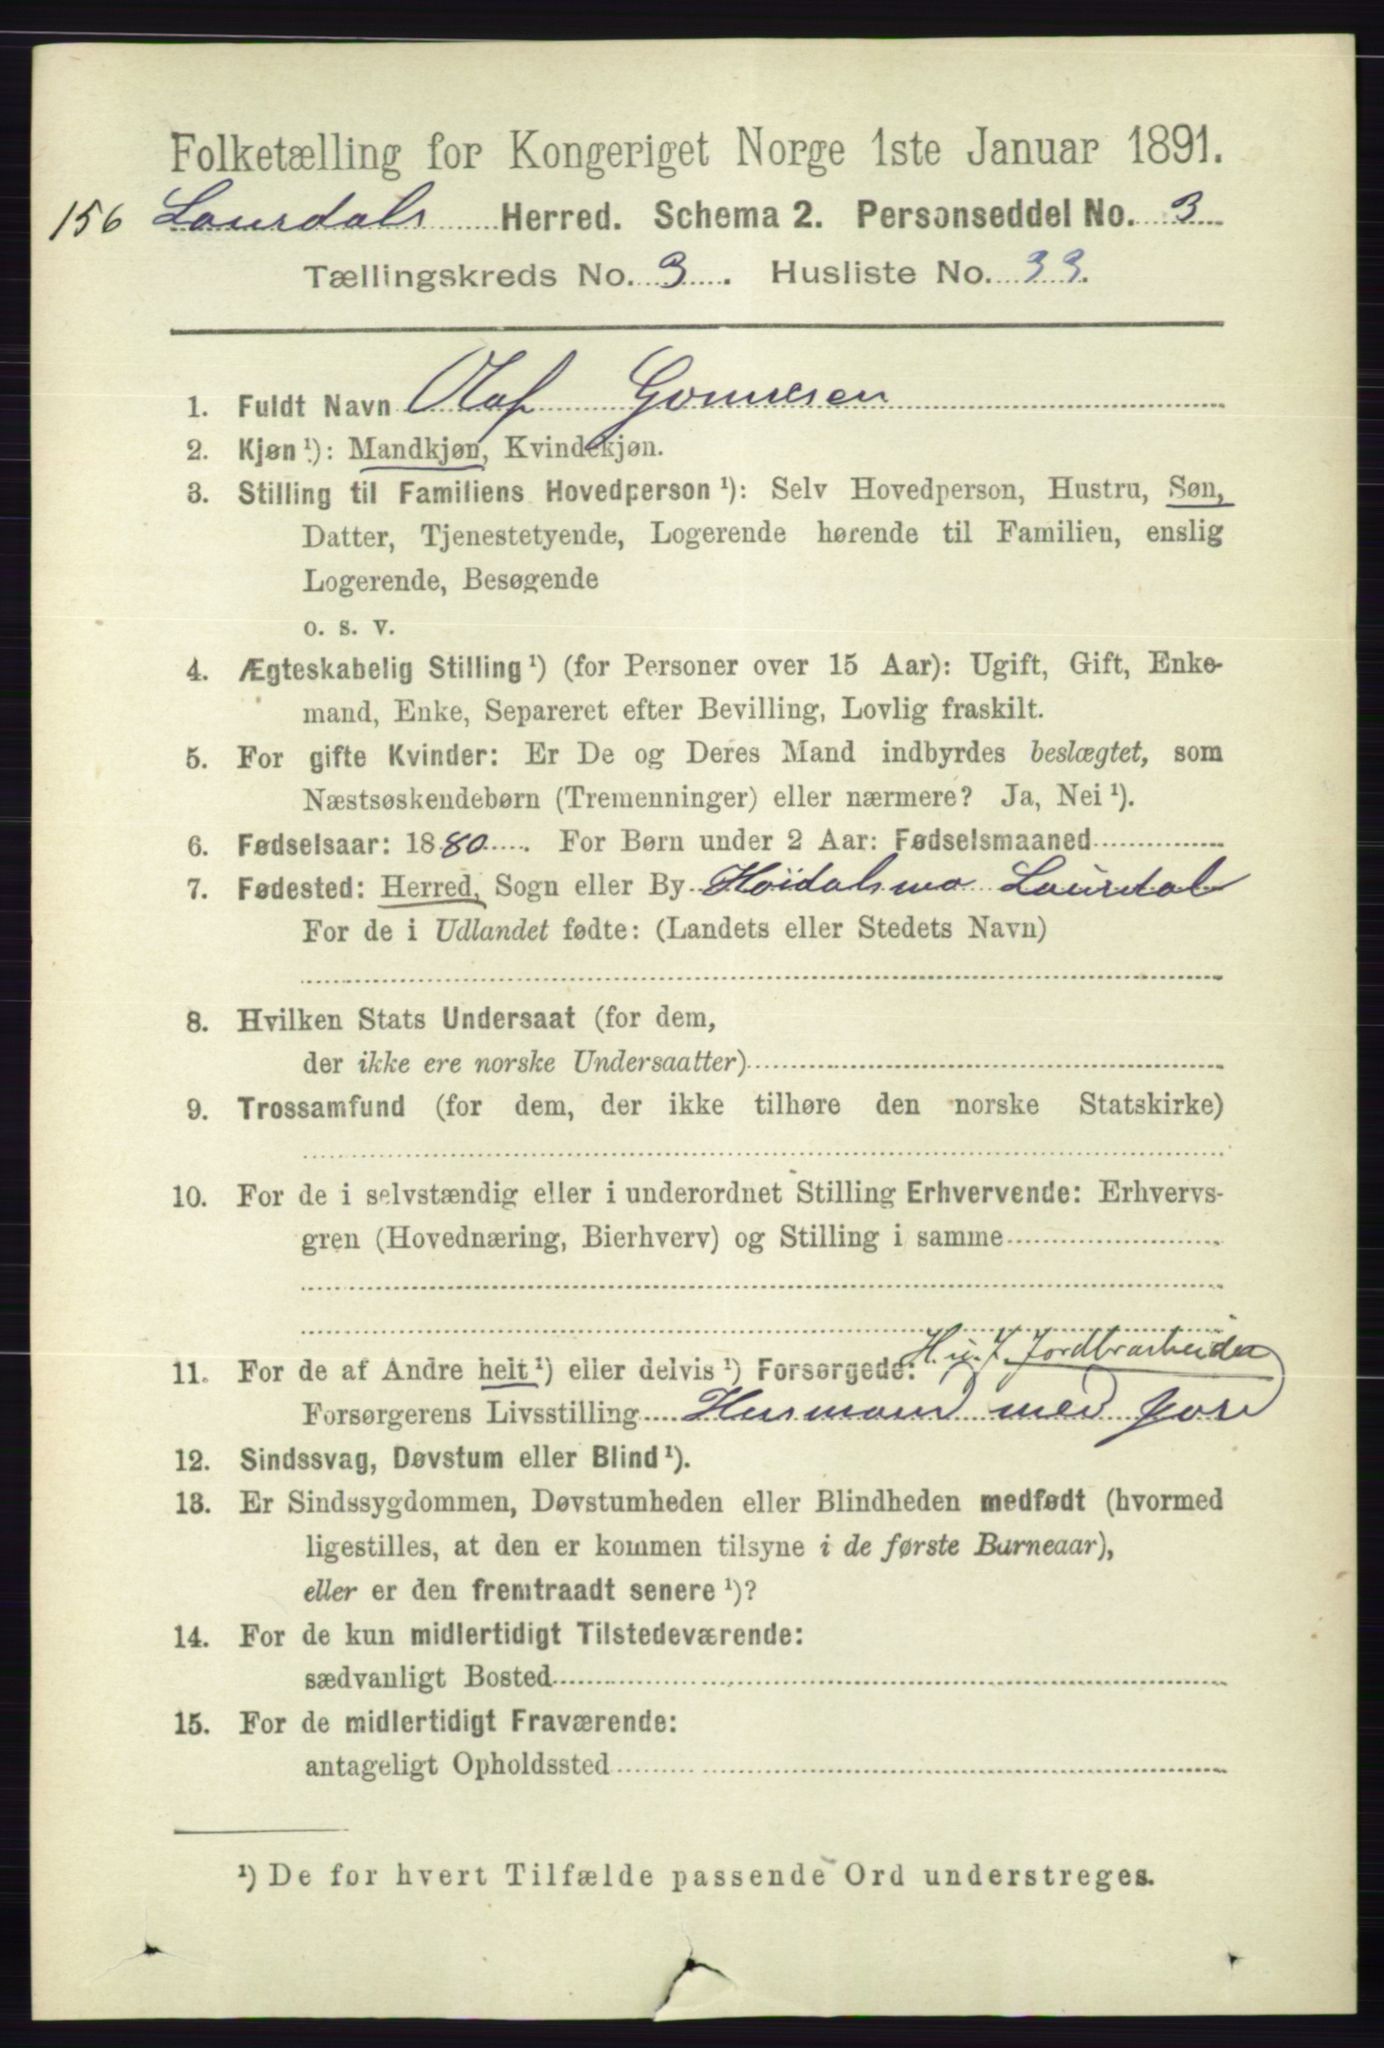 Folketælling for Kongeriget Norge 1ste Januar 1891.
156 Laurdals Herred. Schema 2. Personseddel No. 3
Tællingskreds No. 3. Husliste No. 33.
1. Fuldt Navn Olaf Gunnesen
2. Kjøn¹): Mandkjøn, Kvindekjøn.
3. Stilling til Familiens Hovedperson¹): Selv Hovedperson, Hustru, Søn,
Datter, Tjenestetyende, Logerende hørende til Familien, enslig
Logerende, Besøgende
o. s. v.
4. Ægteskabelig Stilling¹) (for Personer over 15 Aar): Ugift, Gift, Enke-
mand, Enke, Separeret efter Bevilling, Lovlig fraskilt.
5. For gifte Kvinder: Er De og Deres Mand indbyrdes beslægtet, som
Næstsøskendebørn (Tremenninger) eller nærmere? Ja, Nei¹).
6. Fødselsaar: 1880. For Børn under 2 Aar: Fødselsmaaned
7. Fødested: Herred, Sogn eller By Høidalsmo Laurdal
For de i Udlandet fødte: (Landets eller Stedets Navn)
8. Hvilken Stats Undersaat (for dem,
der ikke ere norske Undersaatter)
9. Trossamfund (for dem, der ikke tilhøre den norske Statskirke)
10. For de i selvstændig eller i underordnet Stilling Erhvervende: Erhvervs-
gren (Hovednæring, Bierhverv) og Stilling i samme
H. y. J. Jordbrarbeider
11. For de af Andre helt¹) eller delvis¹) Forsørgede:
Forsørgerens Livsstilling Husmand med jord
12. Sindssvag, Døvstum eller Blind¹).
13. Er Sindssygdommen, Døvstumheden eller Blindheden medfødt (hvormed
ligestilles, at den er kommen tilsyne i de første Barneaar),
eller er den fremtraadt senere¹)?
14. For de kun midlertidigt Tilstedeværende:
sædvanligt Bosted
15. For de midlertidigt Fraværende:
antageligt Opholdssted
¹) De for hvert Tilfælde passende Ord understreges.